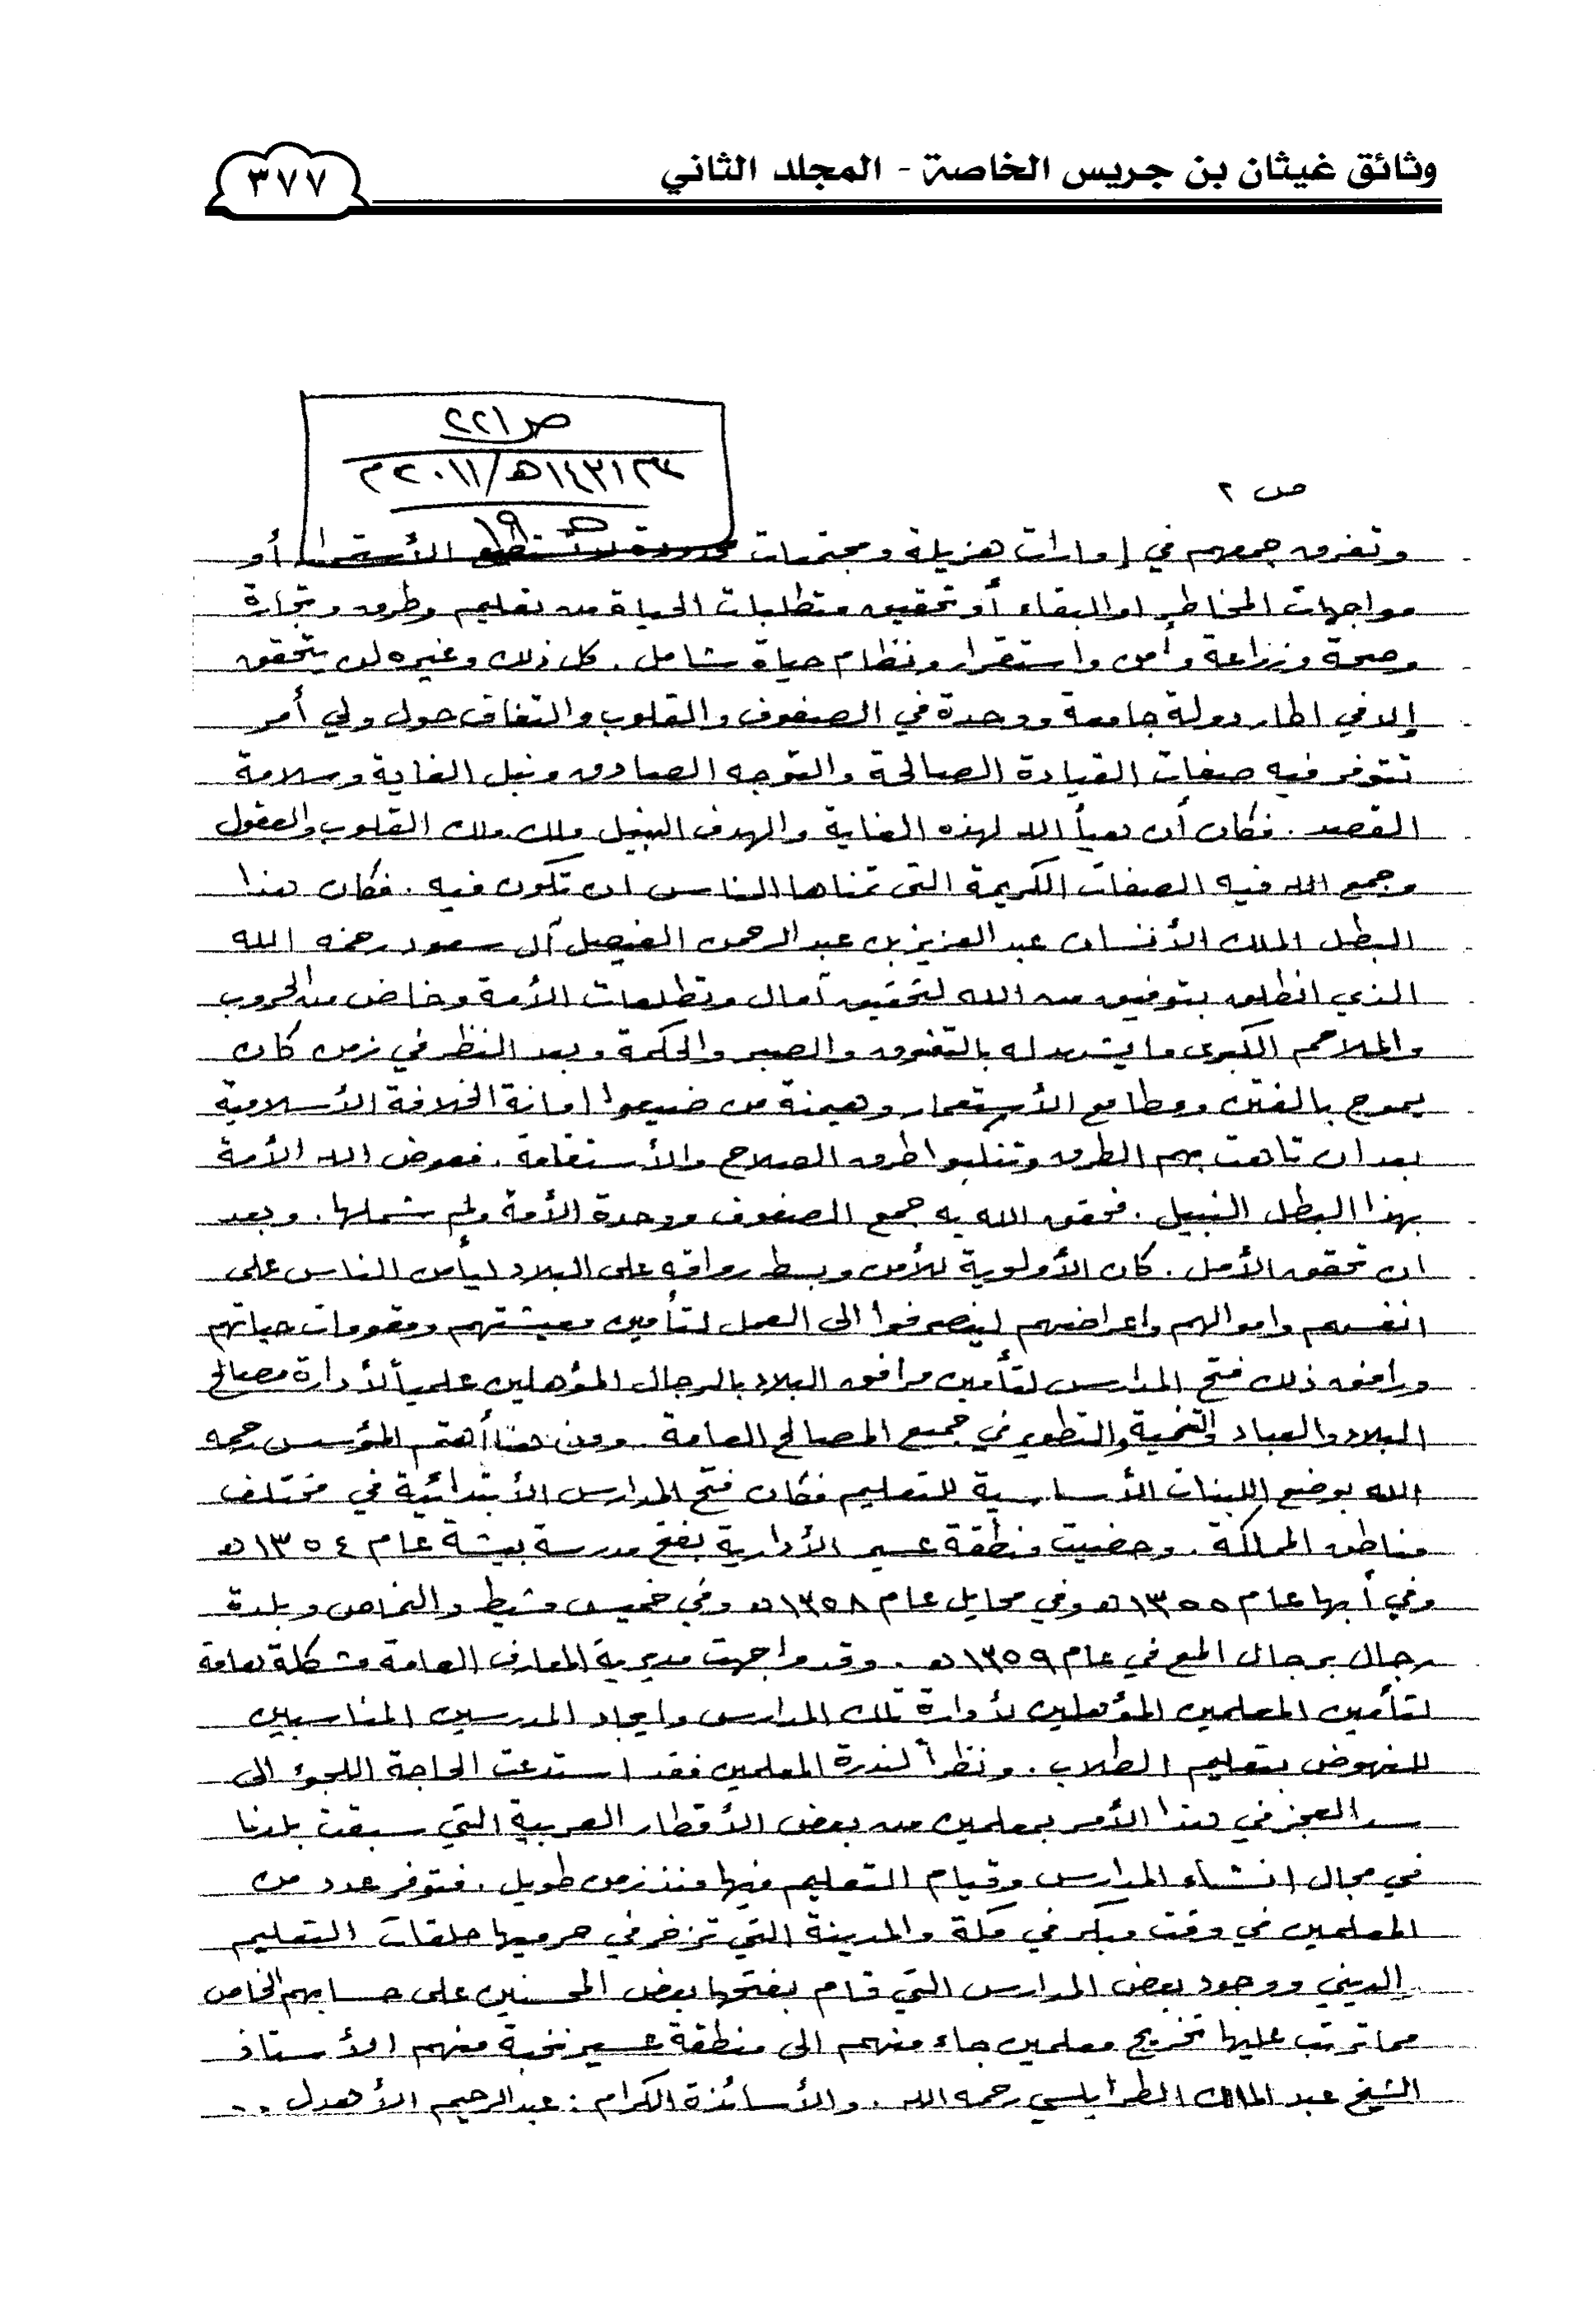 وثائق غيثان بن جريس الخاصة - المجلد الثاني
٣٧٧
ص ٢٢١
١٤٣٢هـ/٢٠١١م
ص ١٩
ص ٢
وتفرق جمعهم في إمارات هزيلة ومجتمعات محدودة لا تستطيع الأستمرار أو
مواجهات المخاطر او البقاء أو تحقيق متطلبات الحياة من تعليم وطرق وتجارة
وصحة وزراعة وأمن واستقرار ونظام حياة شامل . كل ذلك وغيره لن يتحقق
إلا في اطار دولة جامعة ووحدة في الصفوف والقلوب والتفاف حول ولي أمر
تتوفر فيه صفات القيادة الصالحة والتوجه الصادق ونبل الغاية وسلامة
القصد . فكان أن هيأ الله لهذه الغاية والهدف النبيل ملك ملك القلوب والعقول
وجمع الله فيه الصفات الكريمة التي تمناها الناس ان تكون فيه . فكان هذا
البطل الملك الأنسان عبد العزيز بن عبد الرحمن الفيصل آل سعود رحمه الله
الذي انطلق بتوفيق من الله لتحقيق آمال وتطلعات الأمة وخاض من الحروب
والملاحم الكبرى ما يشهد له بالتفوق والصبر والحكمة وبعد النظر في زمن كان
يموج بالفتن ومطامع الأستعمار وهيمنة من ضيعوا امانة الخلافة الأسلامية
بعد ان تاهت بهم الطرق وتنكبوا طرق الصلاح والأستقامة . فعوض الله الأمة
بهذا البطل النبيل . فحقق الله به جمع الصفوف ووحدة الأمة ولم شملها . وبعد
ان تحقق الأمل . كان الأولوية للأمن وبسط رواقه على البلاد ليأمن الناس على
انفسهم واموالهم واعراضهم لينصرفوا الى العمل لتأمين معيشتهم ومقومات حياتهم
ورافق ذلك فتح المدارس لتأمين مرافق البلاد بالرجال المؤهلين علمياً لأدارة مصالح
البلاد والعباد والتنمية والتطوير في جميع المصالح العامة ومن هنا أهتم المؤسس رحمه
الله بوضع اللبنات الأساسية للتعليم فكان فتح المدارس الأبتدائية في مختلف
مناطق المملكة . وحضيت منطقة عسير الأدارية بفتح مدرسة بيشة عام ١٣٥٤هـ
وفي أبها عام ١٣٥٥هـ وفي محايل عام ١٣٥٨هـ وفي خميس مشيط والنماص وبلدة
رجال برجال المع في عام ١٣٥٩هـ . وقد واجهت مديرية المعارف العامة مشكلة هامة
لتأمين المعلمين المؤهلين لأدارة تلك المدارس وايجاد المدرسين المناسبين
للنهوض بتعليم الطلاب . ونظراً لندرة المعلمين فقد استدعت الحاجة اللجوء الى
سد العجز في هذا الأمر بمعلمين من بعض الأقطار العربية التي سبقت بلدنا
في مجال انشاء المدارس وقيام التعليم فيها منذ زمن طويل . فتوفر عدد من
المعلمين في وقت مبكر في مكة والمدينة التي تزخر في حرميها حلقات التعليم
الديني ووجود بعض المدارس التي قام بفتحها بعض المحسنين على حسابهم الخاص
مما ترتب عليها تخريج معلمين جاء منهم الى منطقة عسير نخبة منهم الأستاذ
الشيخ عبد المالك الطرابلسي رحمه الله . والأساتذة الكرام : عبد الرحيم الأهدل ..